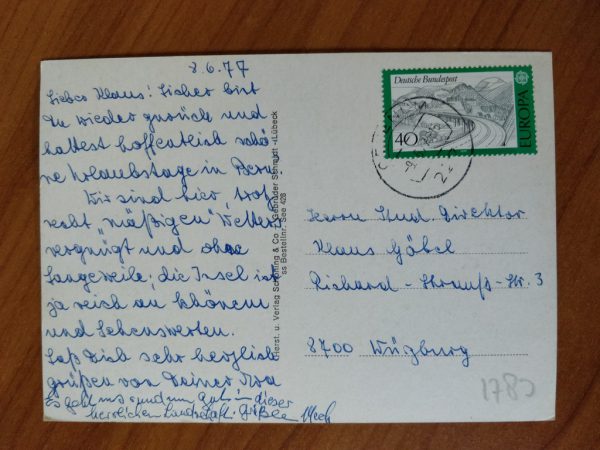 8.6.77
Lieber Klaus! Sicher bist
Du wieder zurück und
hattest hoffentlich schö
ne Urlaubstage in
Wir sind hier, trotz
recht "mäßigen" Wetters
vergnügt und ohne
Langeweile; die Insel ist
ja reich an Schönem
und Sehenswerten.
Laß Dich sehr herzlich
grüßen von Deiner
Es geht uns rundum gut in dieser
herrlichen Landschaft. Grüße
Herst. u. Verlag Schöning & Co + Gebrüder Schmidt · Lübeck
ss Bestellnr. See 428
Deutsche Bundespost
40
EUROPA
Herrn Stud. Direktor
Klaus Göbel
Richard-Strauß-Str. 3
8700 Würzburg
1785